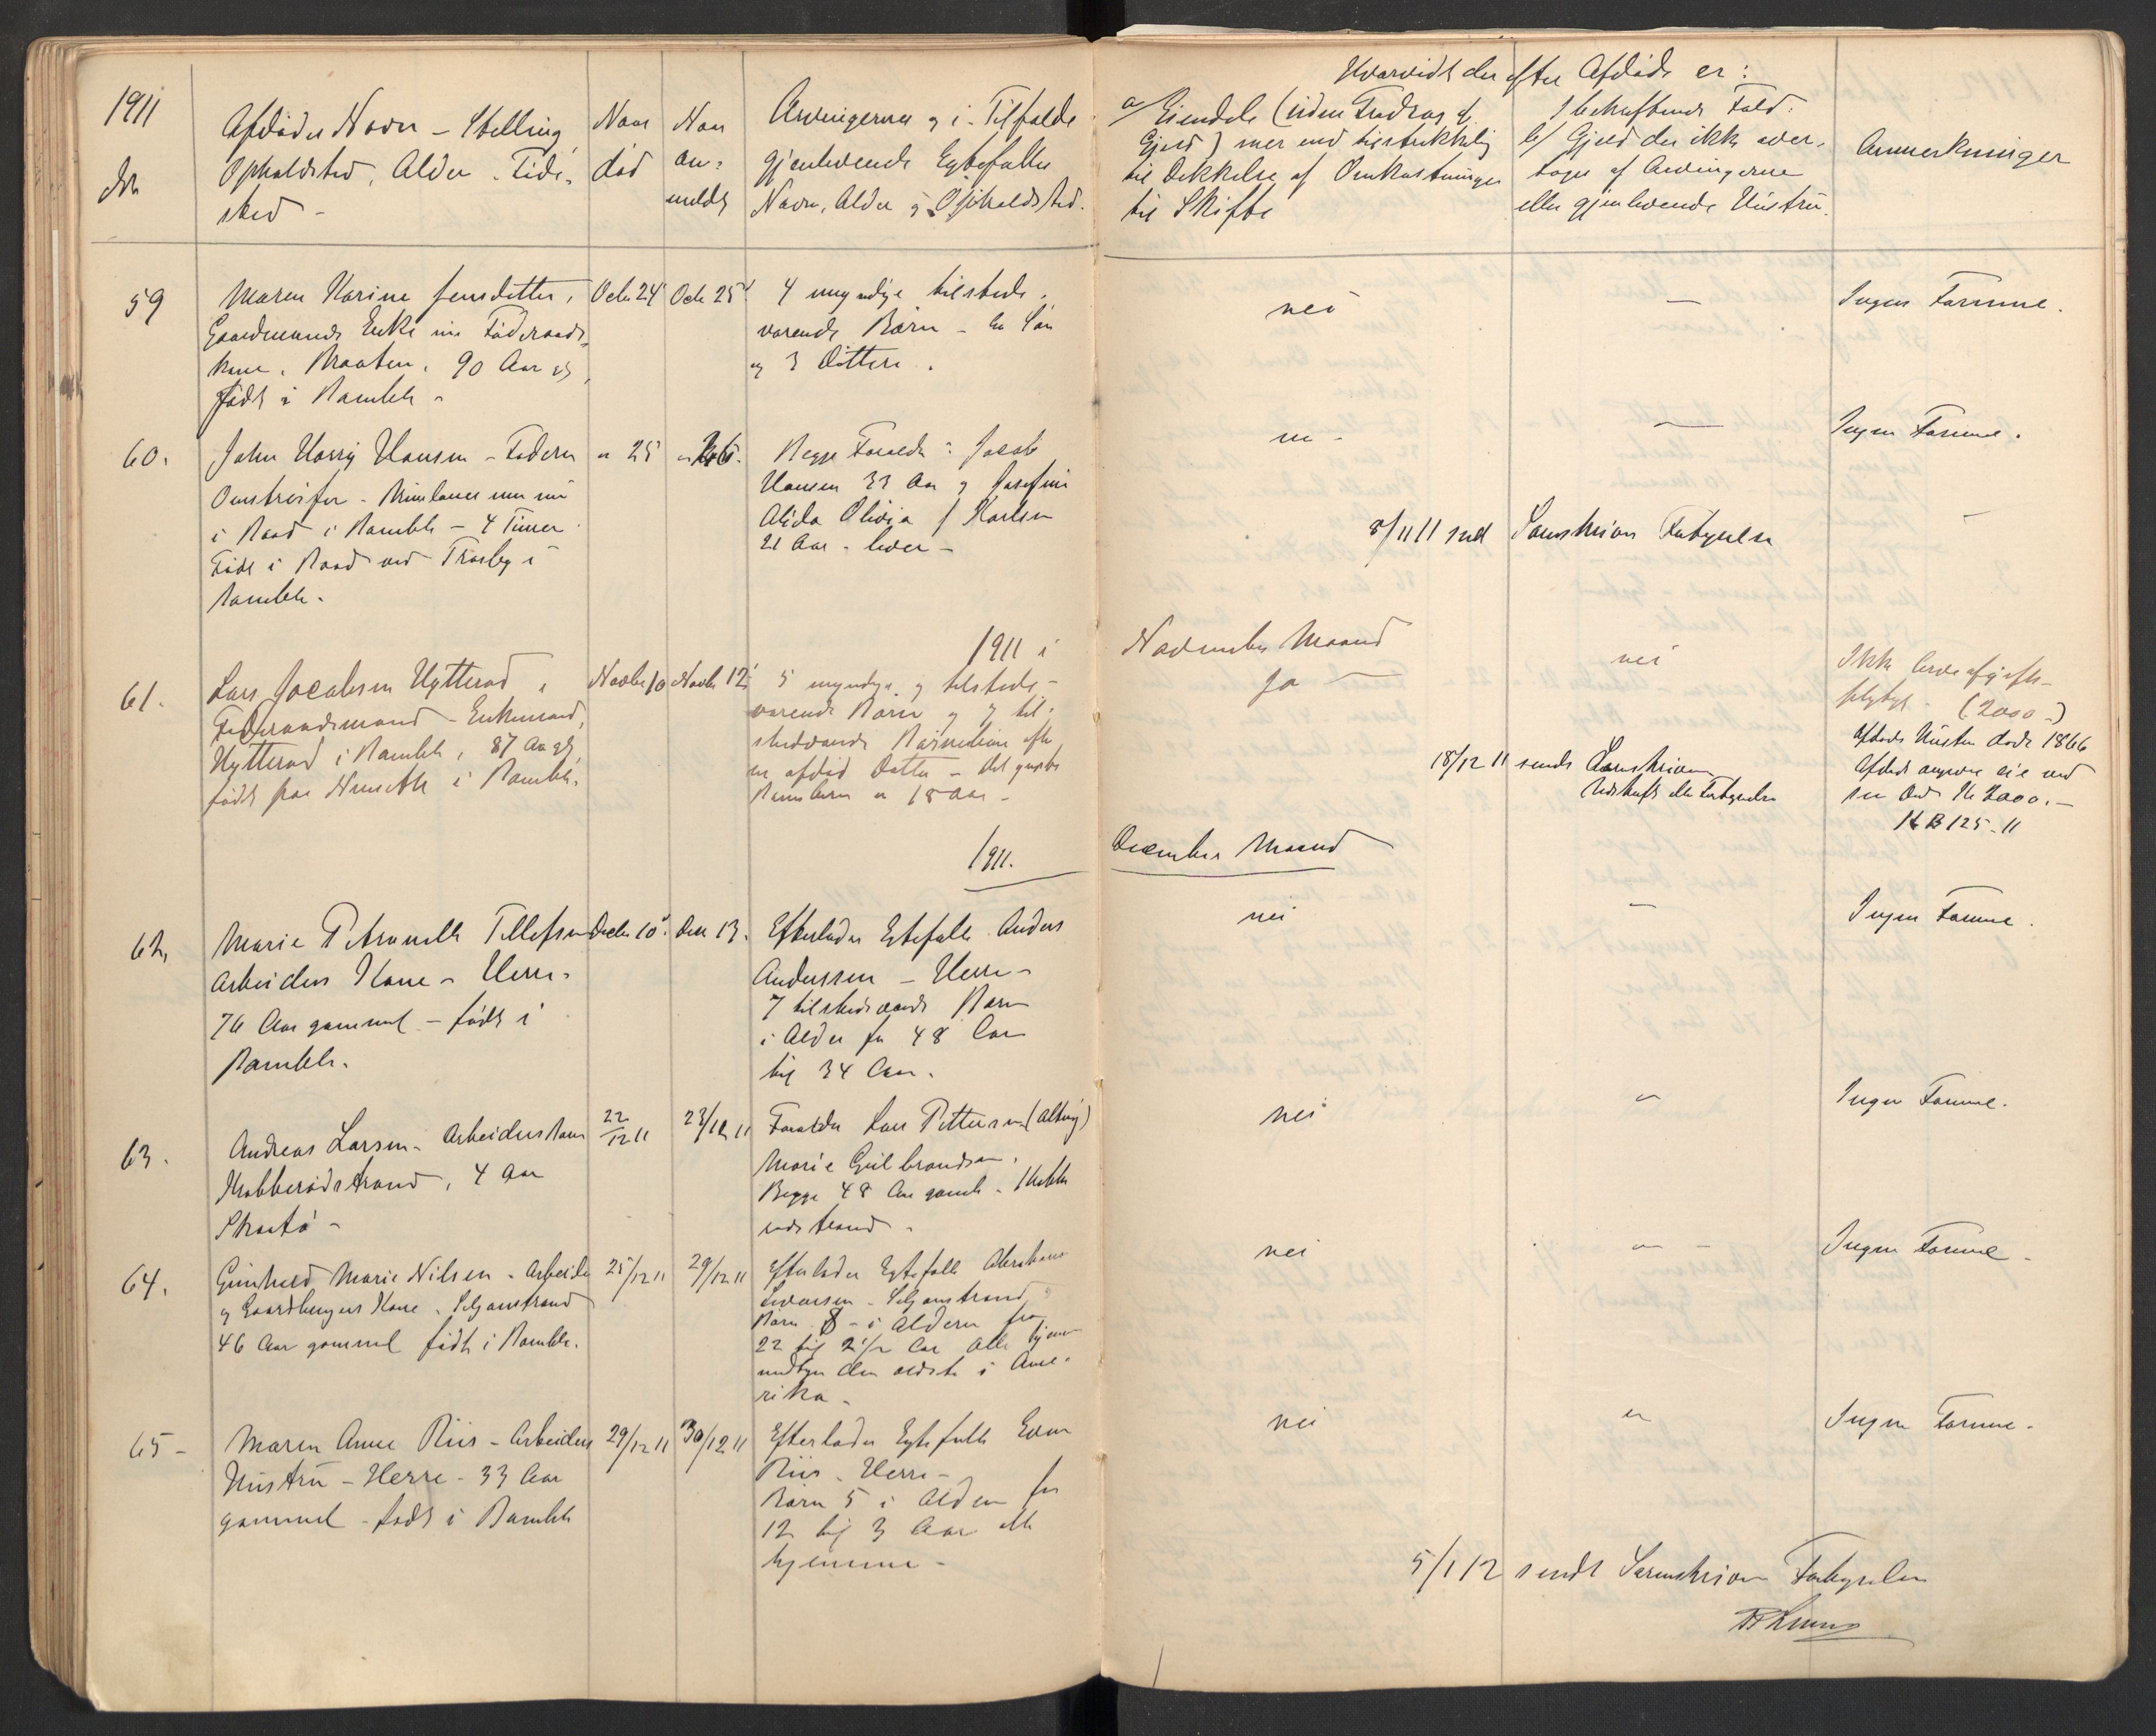 1911
No
Afdødes Navn - Stilling
Opholdsted, Alder - Føde-
sted -
Naar
død
Naar
an-
meldt
Arvingerne og i Tilfælde
gjenlevende Egtefælles
Navn, Alder og Opholdsted.
Hvorvidt der efter Afdøde er:
a/ Eiendele (uden Fradrag af
Gjæld) mer end tilstrækkelig
til Dækkelse af Omkostninger
til Skifte
I bekræftende Fald:
b/ Gjæld der ikke over-
tages af Arvingerne
eller gjenlevende Hustru.
Anmerkninger
59
Maren Karine Jensdatter,
Gaardmands Enke nu Føderaads-
kone, Braaten, 90 Aar gl,
født i Bamble -
Octr 24
Octr 25
4 myndige tilstede-
værende Børn - en Søn
og 3 Døttre.
nei
—
Ingen Formue.
60.
John Harry Hansen - Faderen
Omstreifer - Mindaues nu
i Raad i Bamble - 4 Timer
Født i Raad ved Trosby i
Bamble.
" 25
" 26.
Begge Forældre: Jacob
Hansen 33 Aar og Josefine
Alida Olivia f Karlsen
21 Aar - lever -
nei -
—
Ingen Formue.
8/11 11 sendt Sorenskriver Fortegnelse
1911 i
November Maaned
61.
Lars Jacobsen Hytterød,
Føderaadsmand - Enkemand,
Hytterød i Bamble, 87 Aar gl,
født paa Nenseth i Bamble.
Novbr 10
Novbr 12
5 myndige og tilstede-
værende Børn og 7 til-
stedeværende Børnebørn efter
en afdød Datter - det yngste
Barnebarn er 18 Aar -
Ja —
nei
Ikke Arveafgifts-
pligtigt - (2000 -)
Afdødes Hustru døde 1866
Afdøde angives eie ved
sin Død Kr 2000.-
KB 125-11
18/12 11 sendt Sorenskriver
Udskrift eller Fortegnelse
1911.
December Maaned
62,
Marie Petronelle Tellefsen
Arbeiders Kone - Herre -
76 Aar gammel - født i
Bamble.
Decbr 10
Decr 13.
Efterlader Egtefælle Anders
Anderssen - Herre -
7 tilstedeværende Børn
i Alder fra 48 Aar
til 34 Aar.
nei
—
Ingen Formue.
63.
Andreas Larsen - Arbeiders Barn
Krabberødstrand, 4 Aar
Skaatø -
22/12 11
23/12 11
Forældre Lars Pettersen
Marie Gulbrandsen,
Begge 48 Aar gamle - Krabbe-
rødstrand -
nei
"
Ingen Formue.
64.
Gunhild Marie Nilsen - Arbeider
og Gaardbrugers Kone - Seljonstrand
46 Aar gammel født i Bamble.
25/12 11
29/12 11
Efterlader Egtefælle Abraham
Sivertsen - Seljonstrand,
Børn 8 - i Alderen fra
22 til 2 1/2 Aar alle hjemme
undtagen den ældste i Ame-
rika -
nei
" -
Ingen Formue -
65 -
Maren Anne Riis - Arbeiders
Hustru - Herre - 33 Aar
gammel - født i Bamble
29/12 11
30/12 11
Efterlader Egtefælle Even
Riis - Herre -
Børn 5 i Alderen fra
12 til 3 Aar alle
hjemme -
nei
"
Ingen Formue -
5/1 12 sendt Sorenskriver Fortegnelse